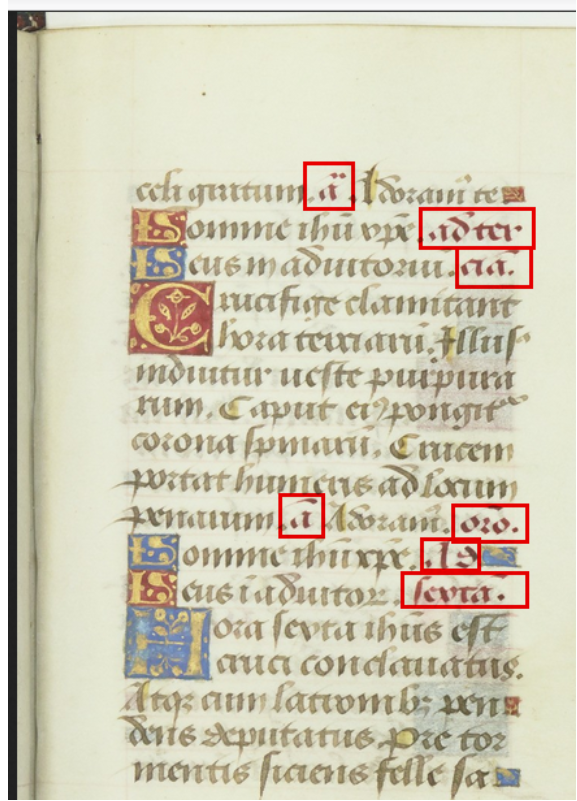 celi giratum. a͞. Adoram᷒ te
Domine ihū xpē. ad ter
Deus in adiutoriū. ciā.
Crucifige clamitant
hora terciarū. Illus
induitur ueste purpura
rum. Caput eiꝰ pongit
corona spinarū. Crucem
portat humeris ad locum
penarum. ā Adoram᷒. oro.
Domine ihū xpē. Ad
Deus ī adiutor. sextā.
Hora sexta ihūs est
cruci conclauatus.
Atqꝫ cum latronibꝫ pen
dens deputatus. Pre tor
mentis siciens felle sa